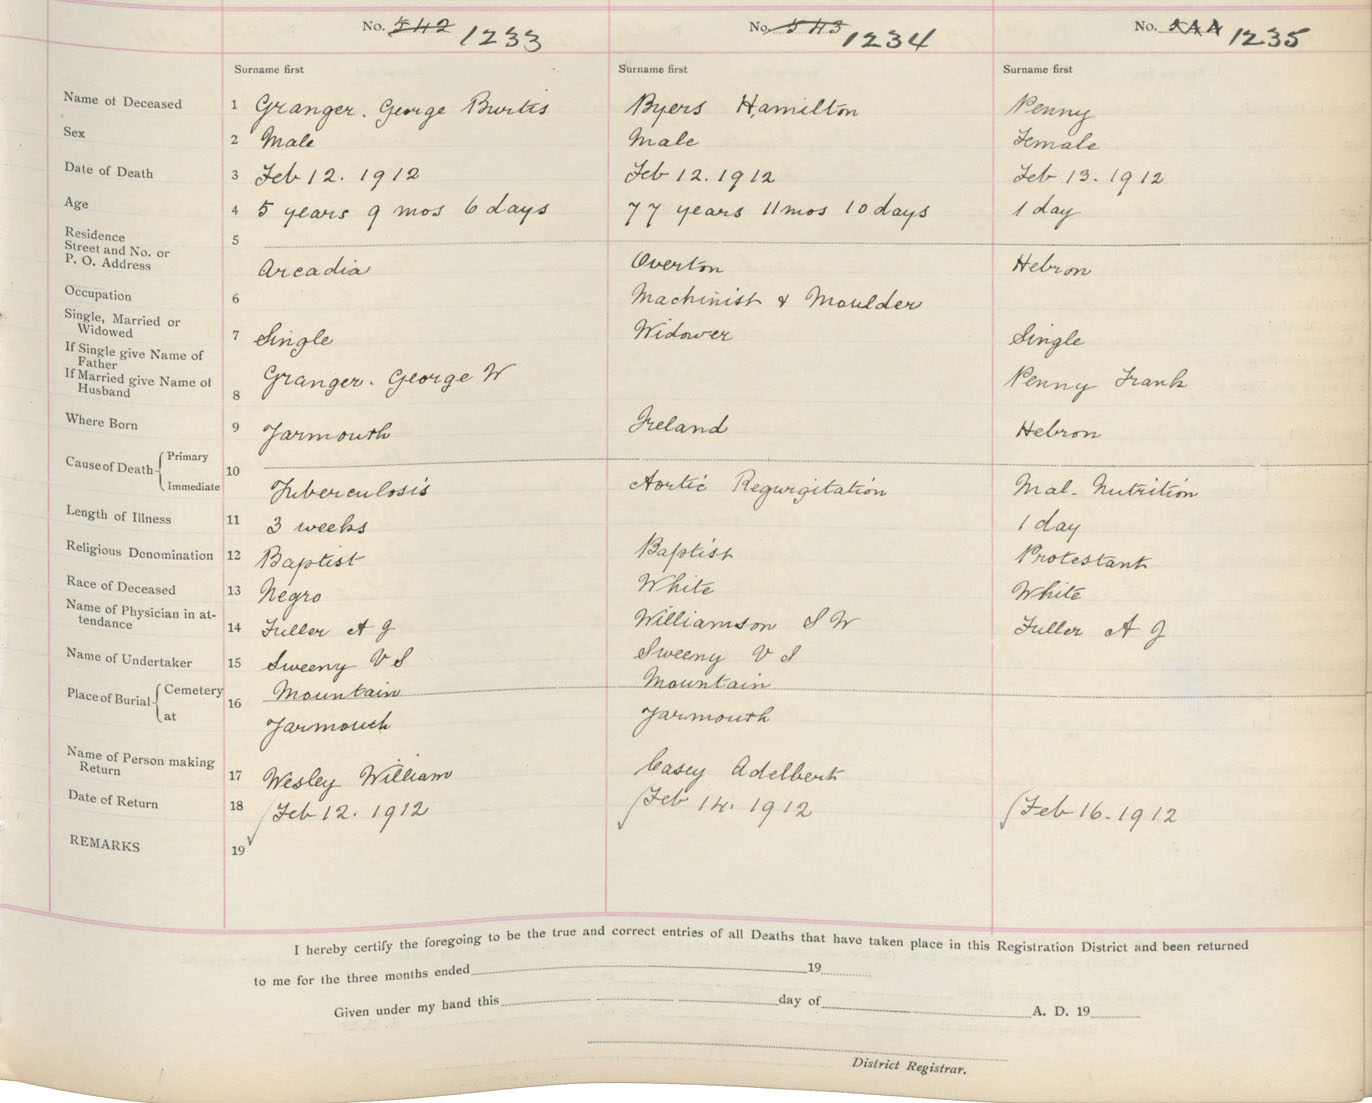 No. 542 1233 No. 543 1234 No. 544 1235
Surname first Surname first Surname first
Name of Deceased 1 Granger. George Burtis Byers Hamilton Penny
Sex 2 Male Male Female
Date of Death 3 Feb 12. 1912 Feb 12. 1912 Feb 13. 1912
Age 4 5 years 9 mos 6 days 77 years 11 mos 10 days 1 day
Residence
Street and No. or 5
P. O. Address Arcadia Overton Hebron
Occupation 6 Machinist & Moulder
Single, Married or
Widowed 7 Single Widower Single
If Single give Name of
Father
If Married give Name of Granger. George W Penny Frank
Husband 8
Where Born 9 Yarmouth Ireland Hebron
Cause of Death Primary 10
Immediate Tuberculosis Aortic Regurgitation Mal-Nutrition
Length of Illness 11 3 weeks 1 day
Religious Denomination 12 Baptist Baptist Protestant
Race of Deceased 13 Negro White White
Name of Physician in at-
tendance 14 Fuller A J Williamson S W Fuller A J
Name of Undertaker 15 Sweeny V S Sweeny V S
Place of Burial Cemetery 16 Mountain Mountain
at Yarmouth Yarmouth
Name of Person making
Return 17 Wesley William Casey Adelbert
Date of Return 18 Feb 12. 1912 Feb 14. 1912 Feb 16. 1912
REMARKS 19
I hereby certify the foregoing to be the true and correct entries of all Deaths that have taken place in this Registration District and been returned
to me for the three months ended 19
Given under my hand this day of A. D. 19
District Registrar.